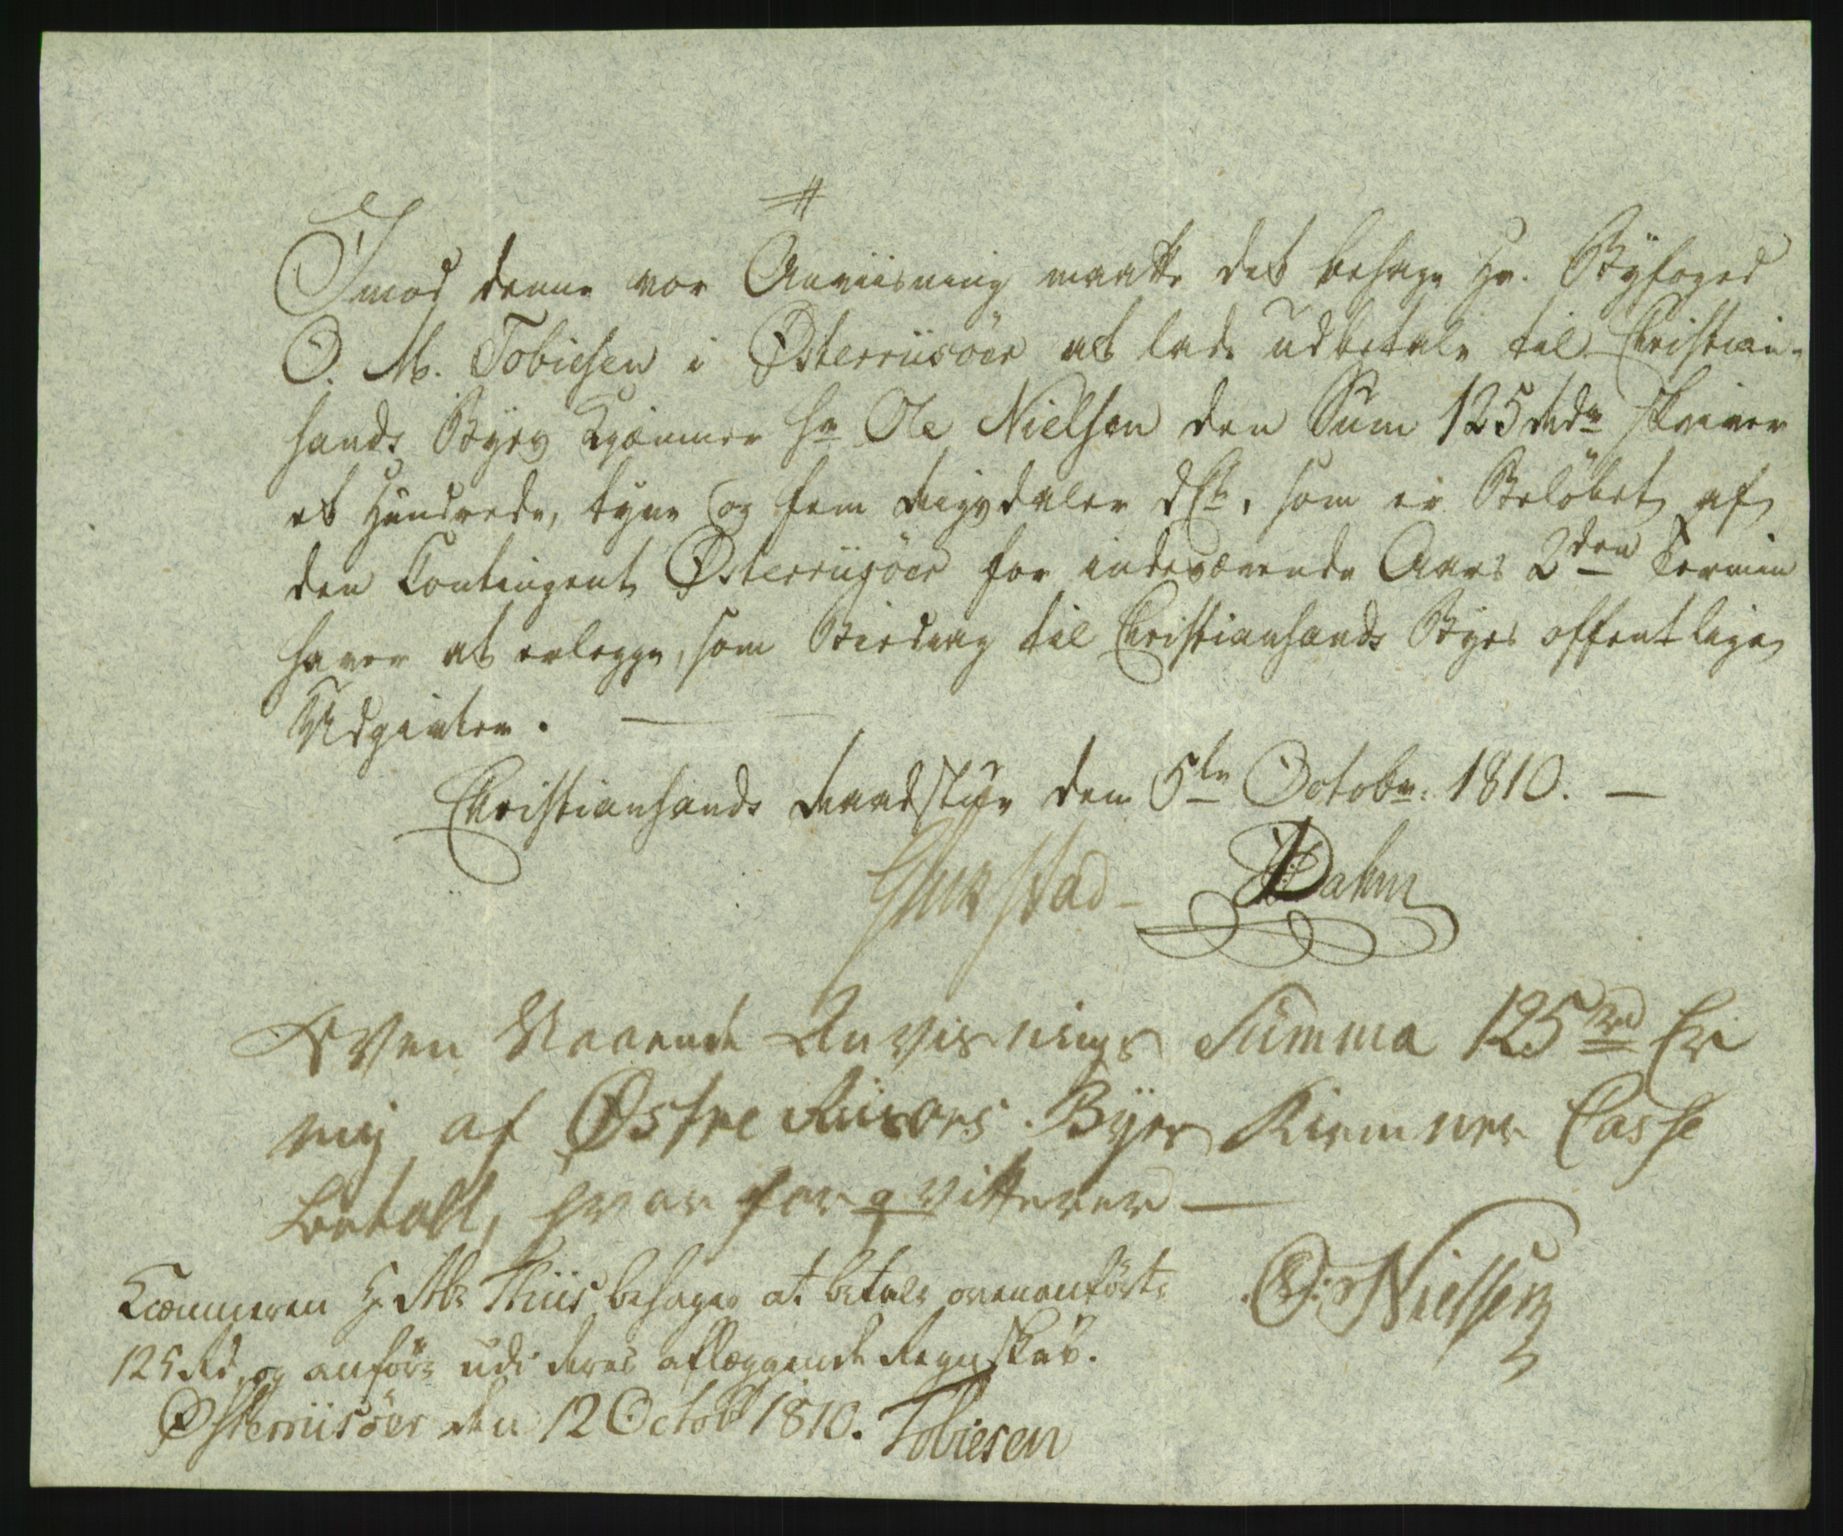 #
Imod denne vor Anviisning maatte det behage Hr. Byfoged
O. M. Tobiesen i Østerriisöer at lade udbetale til Christian-
sands Byes Kjæmner Hr Ole Nielsen den Sum 125 Rdr skriver
et Hundrede, tyve og fem Rigsdaler DCt, som er Beløbet af
den Contingent Østerriisöer for indeværende Aars 2den Termin
haver at erlegge, som Bidrag til Christiansands Byes offentlige
Udgivter. —
Christiansands Raadstue den 5te Octobr: 1810. —
Dahm
Oven Staaende Anvisnings Summa 125 Rd Er
mig af Østre Riisørs Byes Kiemner Casse
betalt, hvor for qvitterer —
O: Nielssen
Kæmneren Hr Thiis behager at betale ovenanførte
125 Rd, og anføre udi deres aflæggende Regnskab.
Østerriisöer den 12 Octobr 1810. Tobiesen